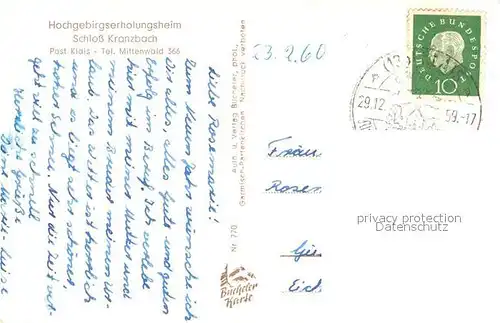 Hochgebirgserholungsheim
Schloß Kranzbach
Post Klais - Tel. Mittenwald 366
Liebe Rosemarie!
Zum Neuen Jahr wünsche ich
Dir alles, alles Gute und guten
Erfolg im Beruf. Ich verlebe
hier mit meiner Mutter und
meinem Bruder meinen Ur-
laub. Das Wetter ist herrlich
und es liegt sehr schöner,
hoher Schnee. Nur die Zeit ver-
geht viel zu schnell
Herzliche Grüße
Marie-Luise
Aufn. u. Verlag Bücheler, phot.,
Garmisch-Partenkirchen Nachdruck verboten
Nr. 770
Bücheler
Karte
23.2.60
DEUTSCHE BUNDESPOST
10
29.12.
59.-17
Frau
Rosen
privacy protection
Datenschutz
Eich